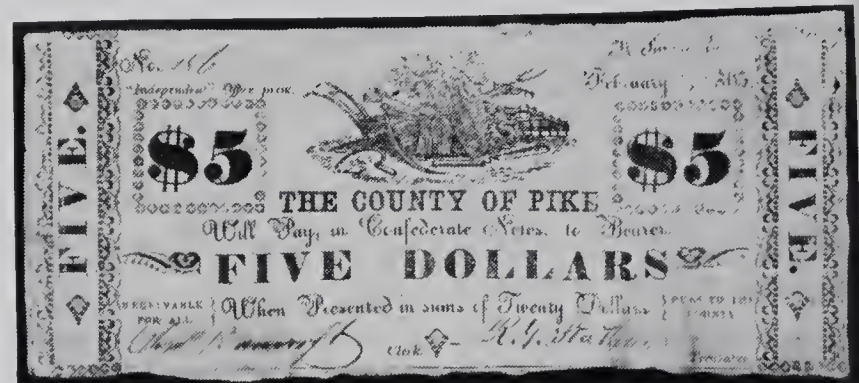 No. 186
February
"Independent" Office print.
FIVE.
$5
$5
FIVE.
THE COUNTY OF PIKE
Will Pay, in Confederate Notes, to Bearer
FIVE DOLLARS
RECEIVABLE FOR ALL
When Presented in sums of Twenty Dollars
DUES TO THE COUNTY
Clerk
Treasurer